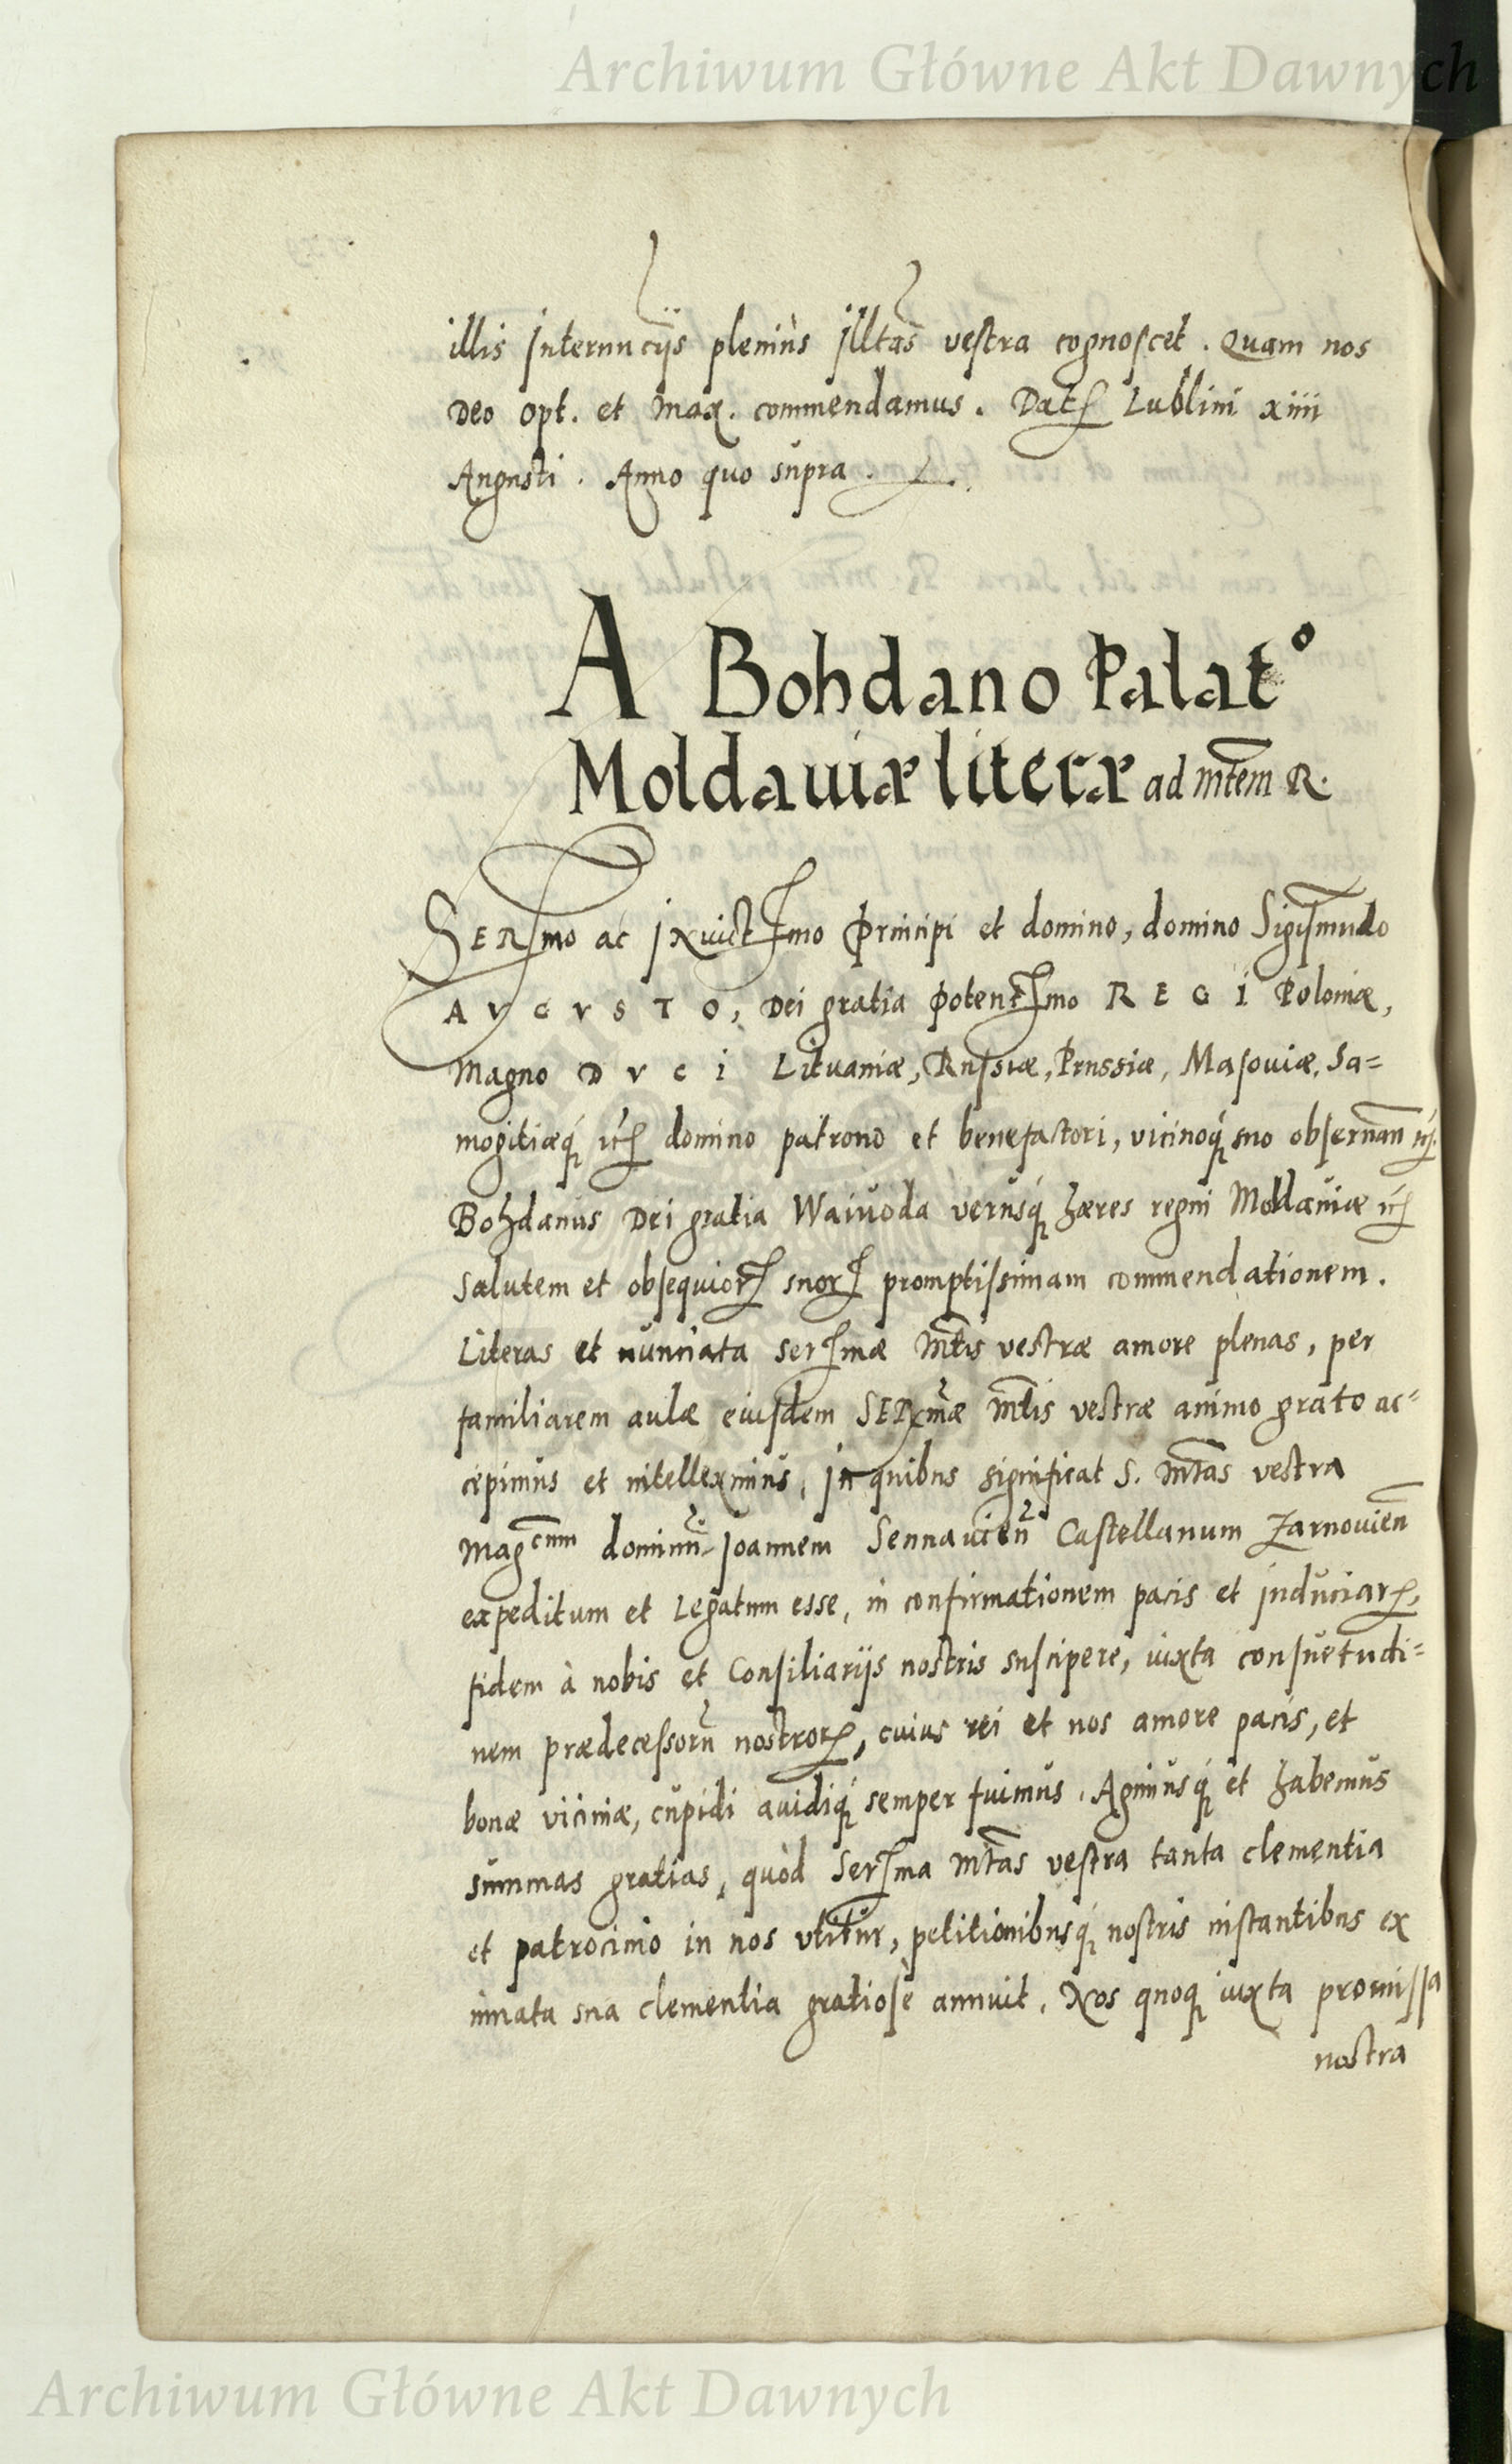 Archiwum Główne Akt Dawnych
illis Internuncijs pleniùs Illtas vestra cognoscet. Quam nos
Deo opt. et Max. commendamus. Dat Lublini xiiii
Augusti. Anno quo supra.
A Bohdano Palat°
Moldauiæ literæ ad Mtem R.
SERmo ac Inuictmo Principi et domino, domino Sigismudo
AVGVSTO, Dei gratia Potentmo REGI Poloniæ,
Magno DVCI Lituaniæ, Russiæ, Prussiæ, Masouiæ, Sa=
mogitiæq́ etc domino patrono et benefactori, vicinoq́ suo obseruan
Bohdanus Dei gratia Waiuoda verusq́ hæres regni Moldauiæ etc
Salutem et obsequior suor promptissimam commendationem.
Literas et nunciata Sermæ Mtis vestræ amore plenas, per
familiarem aulæ eiusdem SERmæ Mtis vestræ animo grato ac=
cepimus et intelleximus, In quibus significat S. Mtas vestra
Magcum dominu Ioannem Sennauien Castellanum Zarnouien
expeditum et Legatum esse, in confirmationem pacis et induciar,
fidem à nobis et Consiliarijs nostris suscipere, iuxta consuetudi=
nem prædecessoru nostror, cuius rei et nos amore pacis, et
bonæ viciniæ, cupidi auidiq́ semper fuimus. Agimusq́ et habemus
summas gratias, quòd Serma Mtas vestra tanta clementia
et patrocinio in nos vtitur, petitionibusq́ nostris instantibus ex
innata sua clementia gratiosè annuit. Nos quoq iuxta promissa
nostra
Archiwum Główne Akt Dawnych